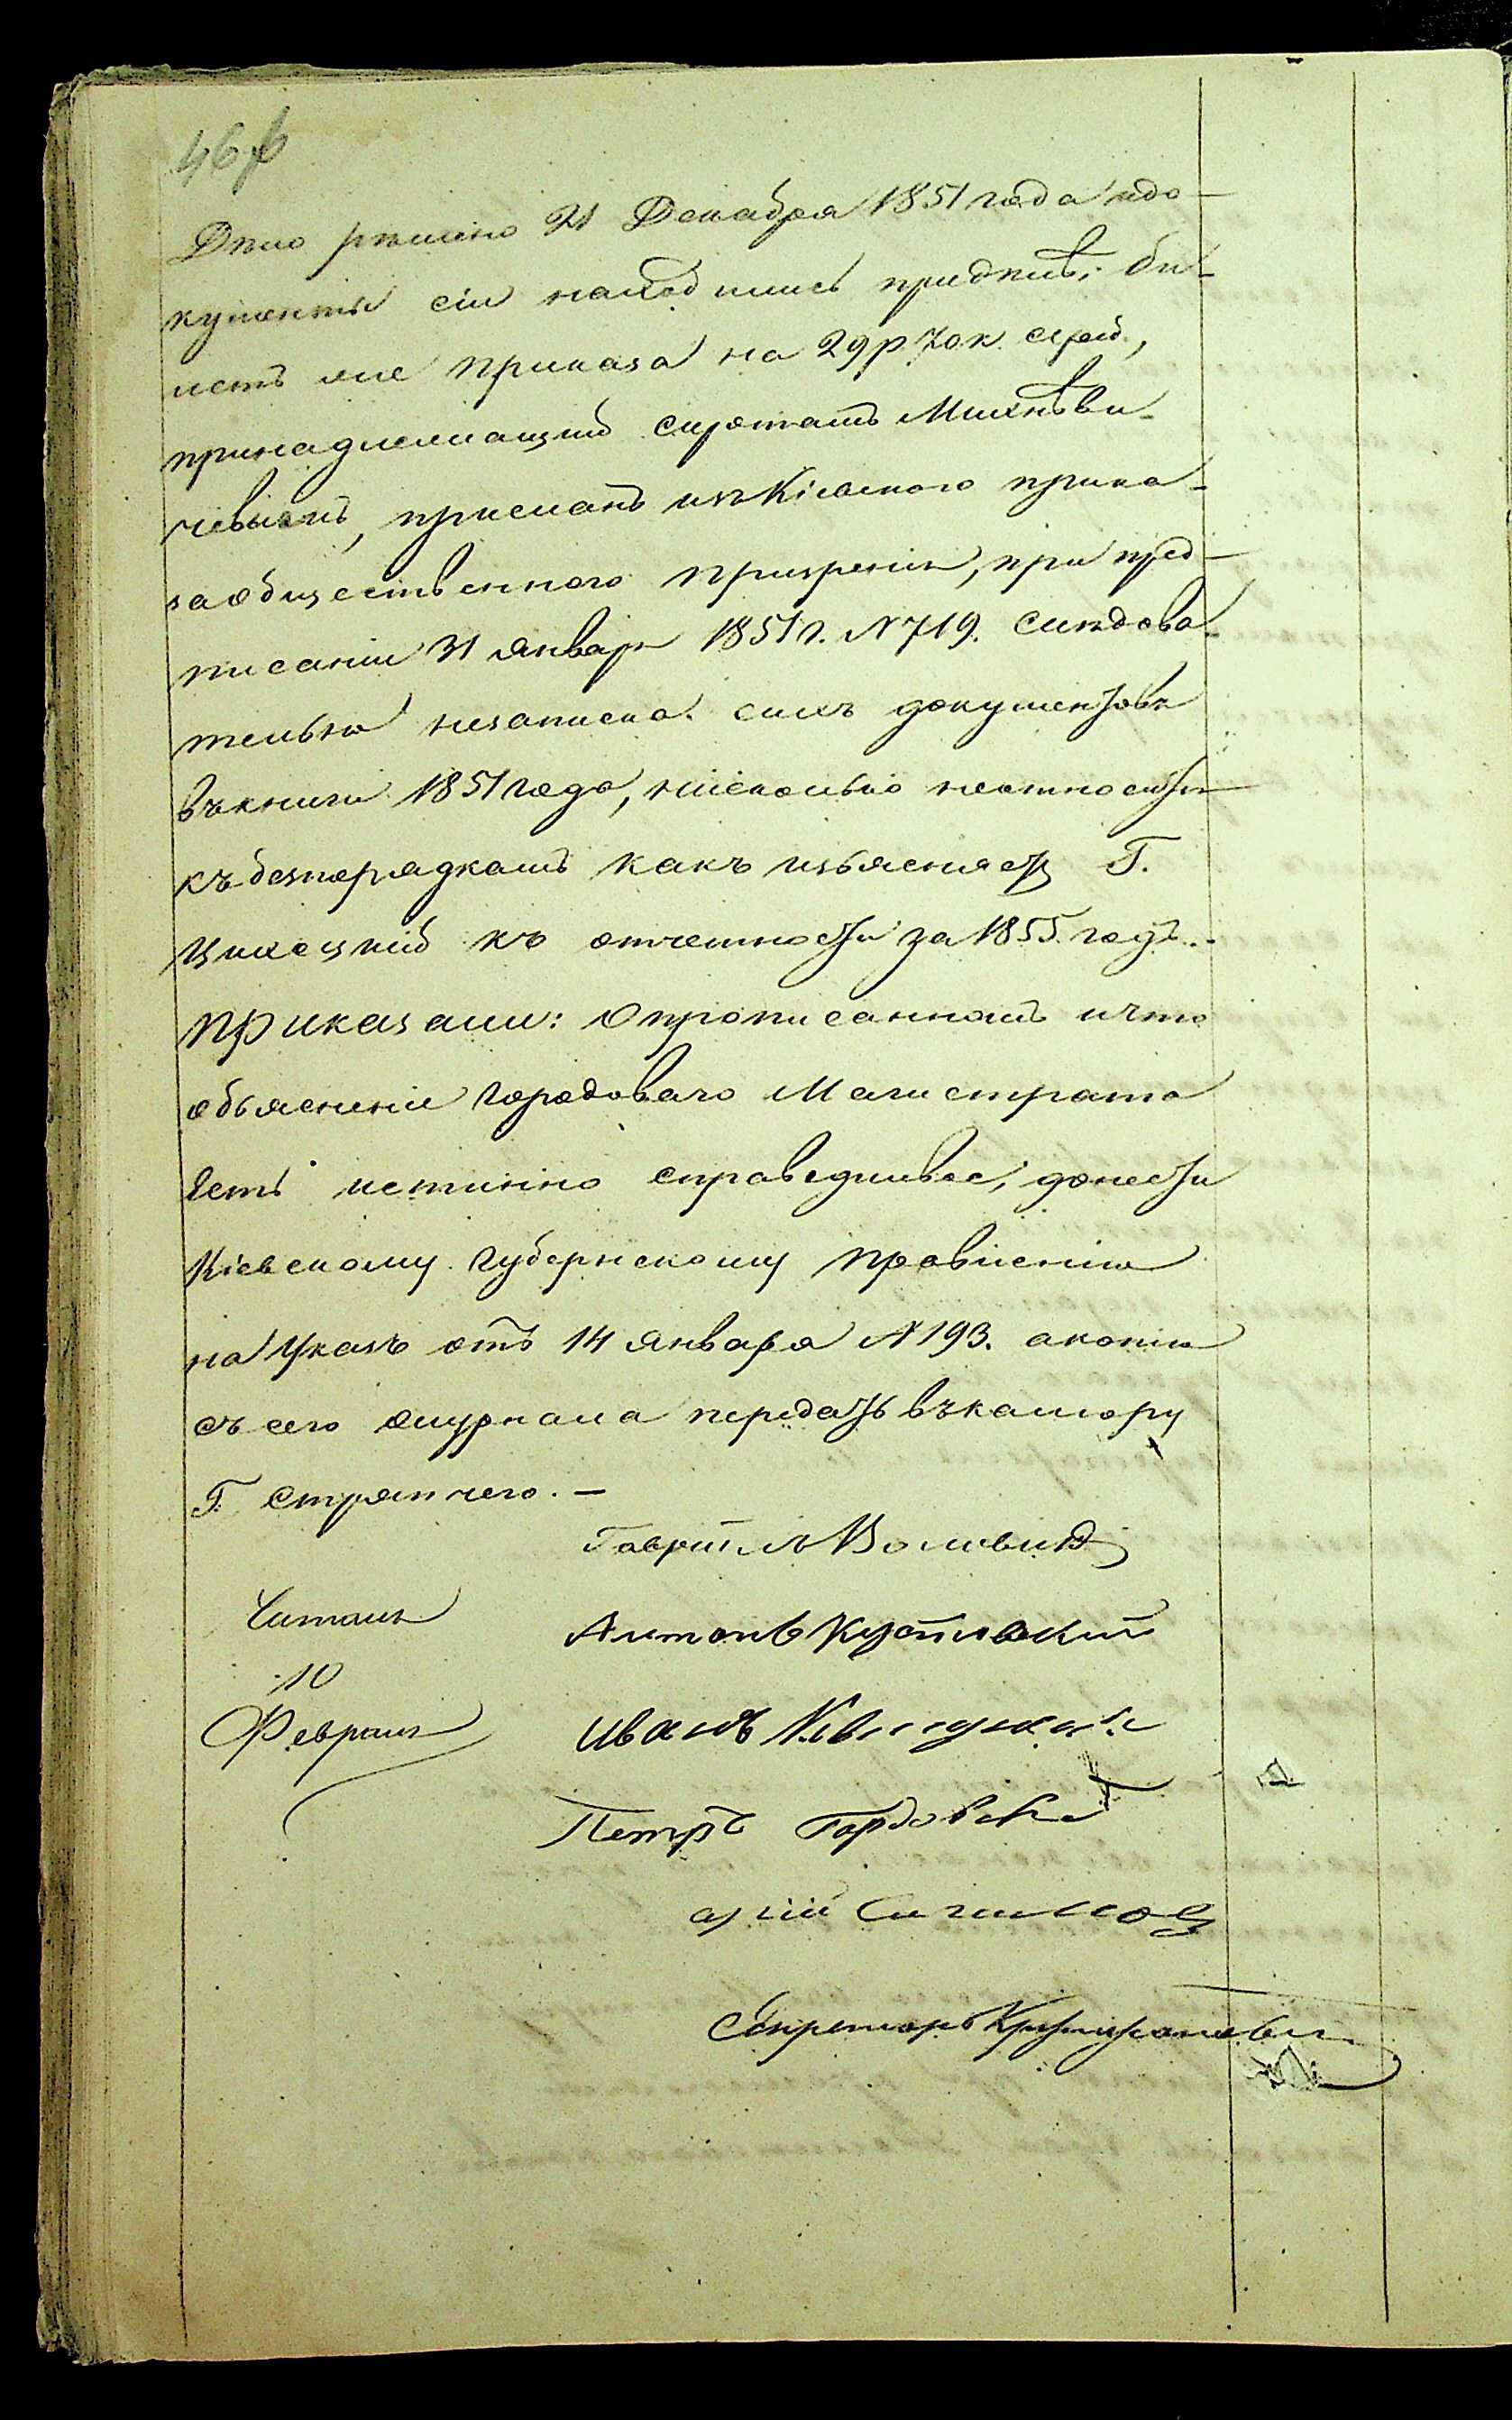 46
Дѣло рѣшено 21 Декабря 1851 года и до-
кументы сіи находились при дѣлѣ; би-
летъ же приказа на 29 р. 70 к. сереб.,
принадлежащій сиротамъ Михнѣви-
чевымъ, присланъ изъ Кіевскаго прика-
за общественнаго призренія, при пред-
писаніи 31 января 1851 г. N 719. Слѣдова-
тельно незаписка сихъ документовъ
въ книги 1851 года, нисколько неотносятся
къ безпорядкамъ какъ изъясняетъ Г.
къ отчетности за 1855 годъ.
Приказали: О прописанномъ и что
объясненіе Городоваго Магистрата
Есть истинно справедливое, донести
Кіевскому Губернскому Правленію
на Указъ отъ 14 января N 193. а копію
съ сего журнала передать въ камору
Г. Стряпчего. —
Гавріилъ
Читалъ
Антонъ
10
Февраля
Иванъ
Петръ
Секретарь